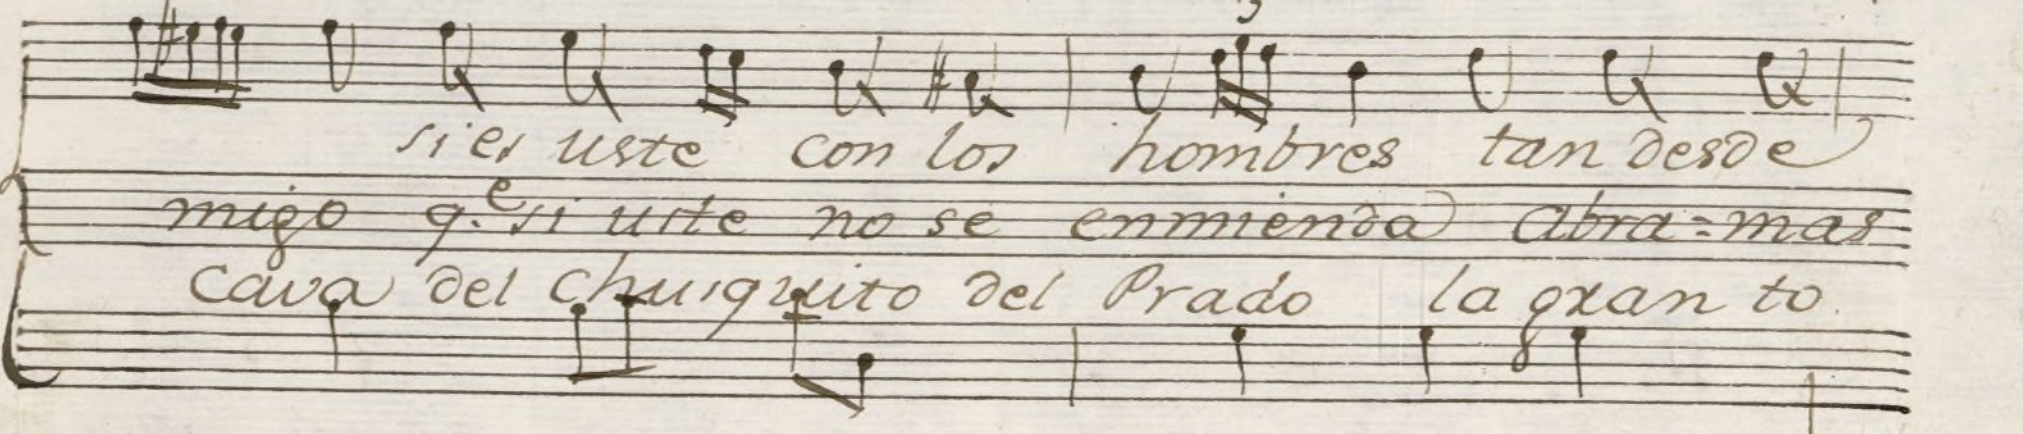 3
si es uste con los hombres tan desde
migo q.e si uste no se enmienda abra=mas
cava del chusquito del Prado la gran to